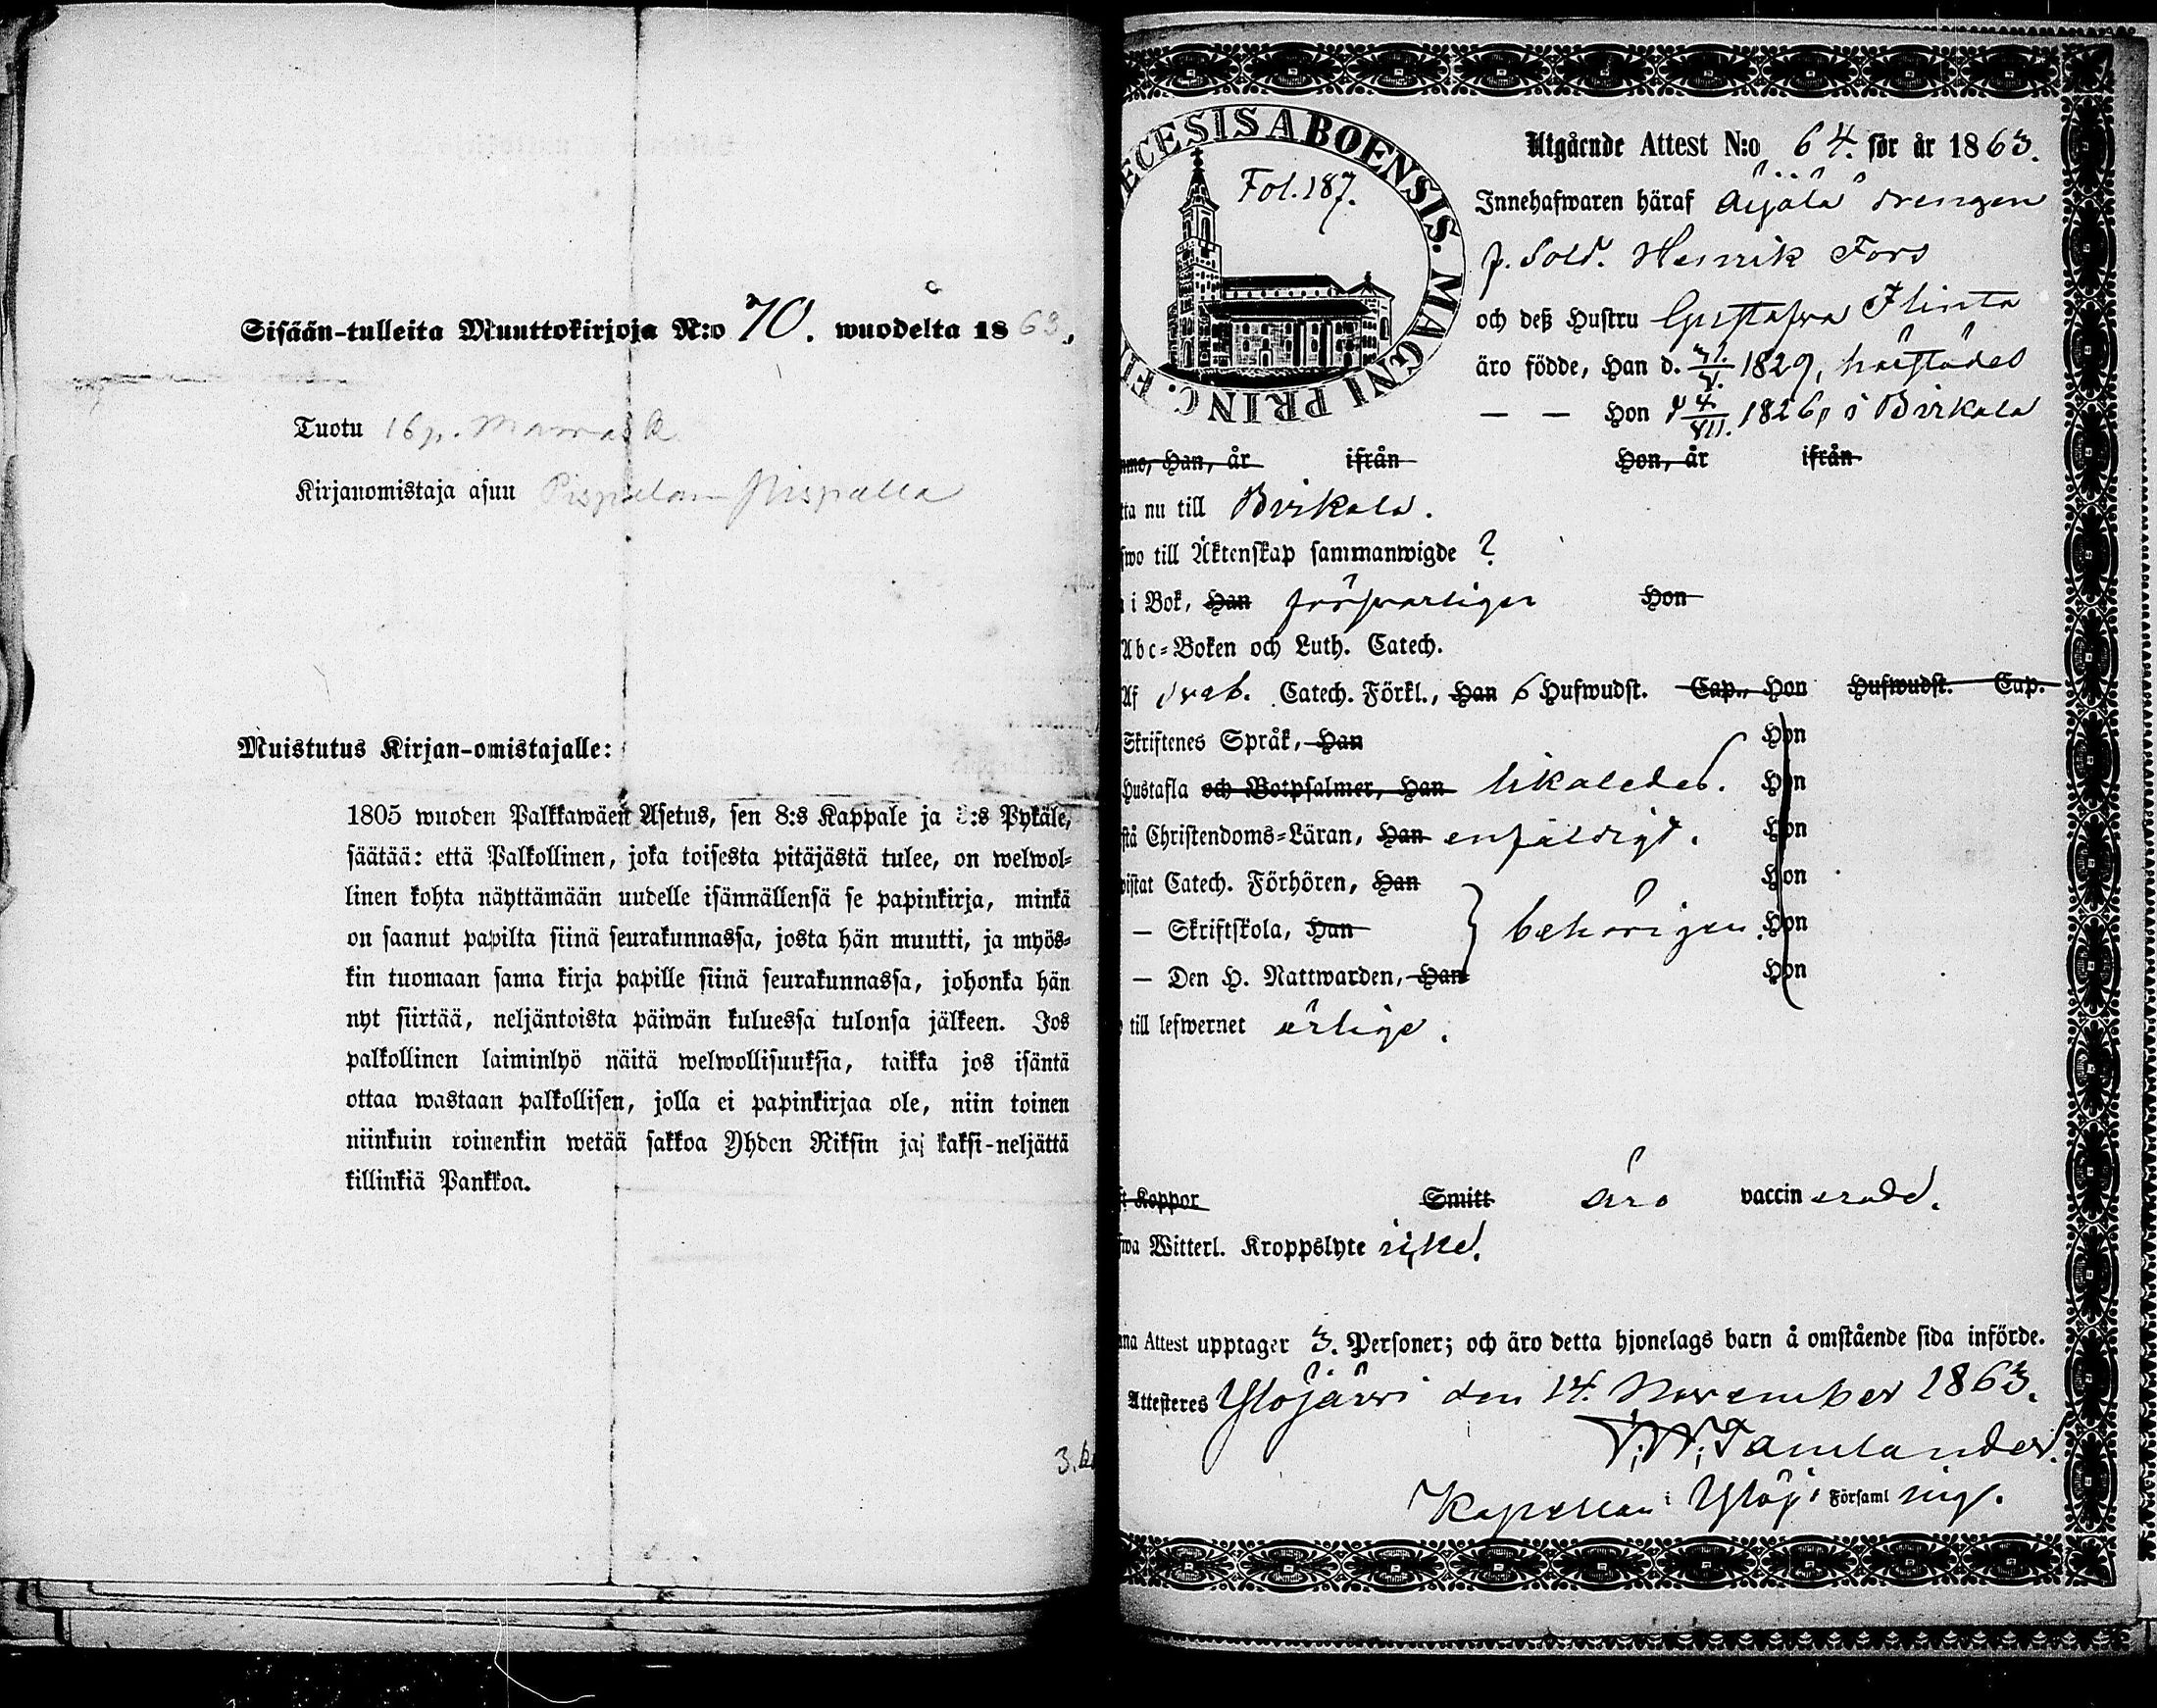 Sisään-tulleita Muuttokirjoja N:o 70. wuodelta 1863.
Tuotu 16 p. Marrask
Kirjanomistaja asuu Pispalan Pispalla
Muistutus Kirjan-omistajalle:
1805 wuoden Palkkawäen Asetus, sen 8:s Kappale ja :s Pykäle,
säätää: että Palkollinen, joka toisesta pitäjästä tulee, on welwol-
linen kohta näyttämään uudelle isännällensä se papinkirja, minkä
on saanut papilta siinä seurakunnassa, josta hän muutti, ja myös-
kin tuomaan sama kirja papille siinä seurakunnassa, johonka hän
nyt siirtää, neljäntoista päiwän kuluessa tulonsa jälkeen. Jos
palkollinen laiminlyö näitä welwollisuuksia, taikka jos isäntä
ottaa wastaan palkollisen, jolla ei papinkirjaa ole, niin toinen
niinkuin toinenkin wetää sakkoa Yhden Riksin ja kaksi-neljättä
killinkiä Pankkoa.
3.
ECESIS ABOENSIS. MAGNI PRINC. FI
Fol. 187.
Utgående Attest N:o 64. för år 1863.
Innehafwaren häraf Äijälä drengen
f. Sold. Henrik Fors
och deß Hustru Gustafva Flinta
äro födde, Han d. 31/V. 1829, härstädes
— — Hon d 4/VII. 1826, i Birkala
mo, Han, år ifrån Hon, år ifrån
ta nu till Birkala.
fwo till Äktenskap sammanwigde ?
i Bok, Han försvarligen Hon
Abc-Boken och Luth. Catech.
Af Sveb. Catech. Förkl., Han 6 Hufwudst. Cap., Hon Hufwudst. Cap.
Skriftenes Språk, Han Hon
Hustafla och Botpsalmer, Han likaledes. Hon
stå Christendoms-Läran, Han enfaldigt. Hon
istat Catech. Förhören, Han Hon
— Skriftskola, Han behörigen. Hon
— Den H. Nattwarden, Han Hon
till lefwernet ärlige.
t Koppor Smitt äro vaccinerade.
fwa Witterl. Kroppslyte icke.
na Attest upptager 3. Personer; och äro detta hjonelags barn å omstående sida införde.
Attesteres Ylöjärvi den 14. November 1863.
Tamlander.
Kapellan i Ylöj. Församling.